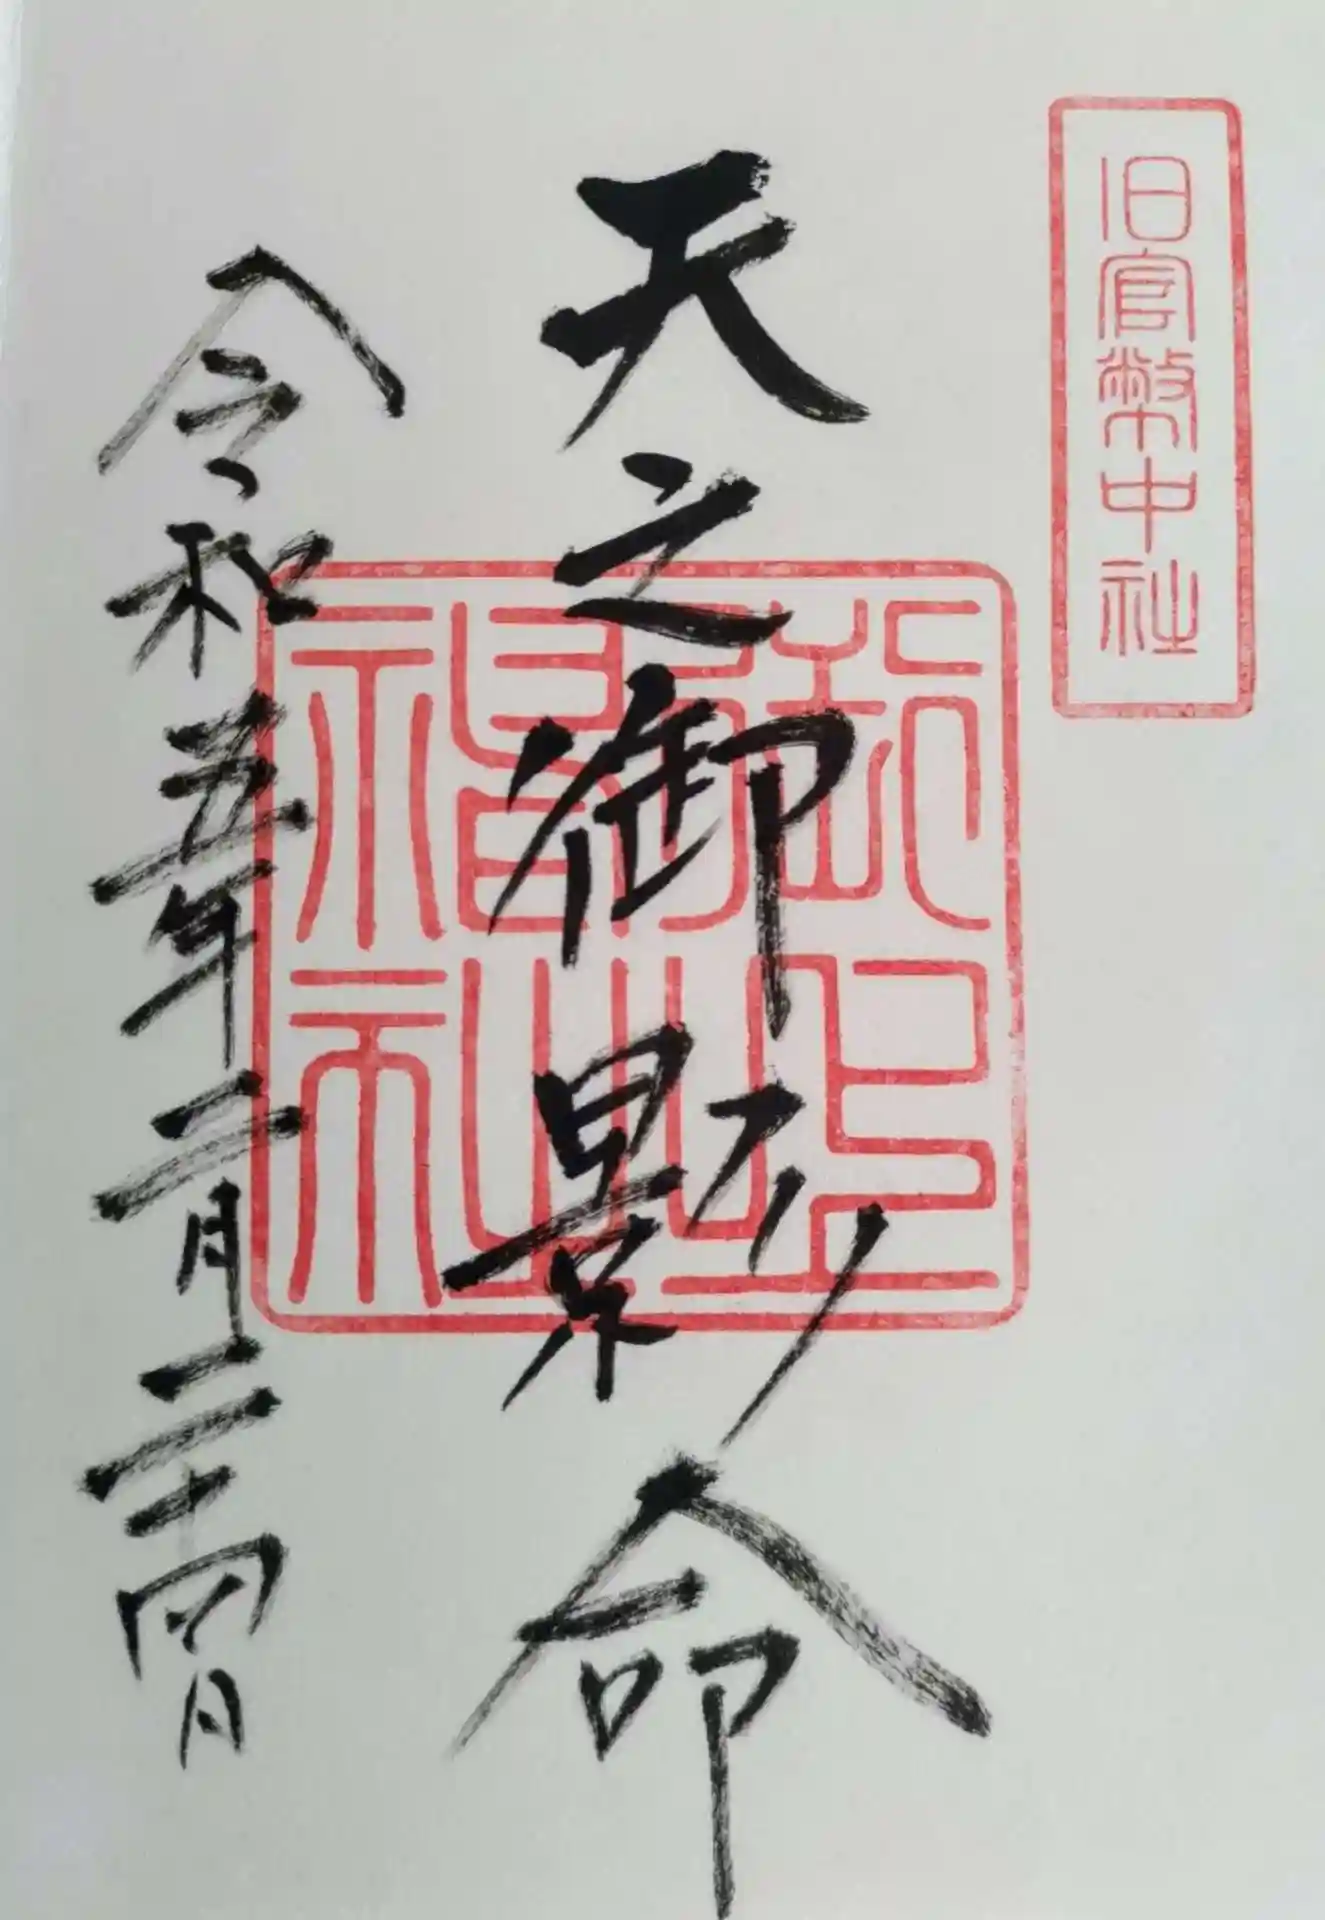 旧官幣中社
天之御影命
御上神社
令和五年二月二十四日